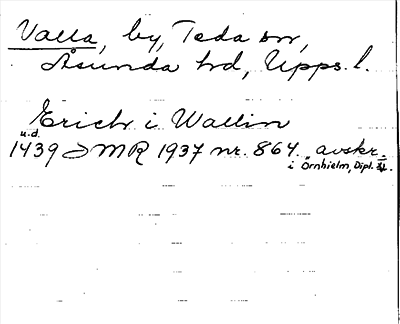 Valla, by, Teda sn,
Åsunda hd, Upps. l.
Erich i Wallin
u.d.
1439 DMR 1937 nr. 864. avskr.
i Örnhielm, Dipl. II.